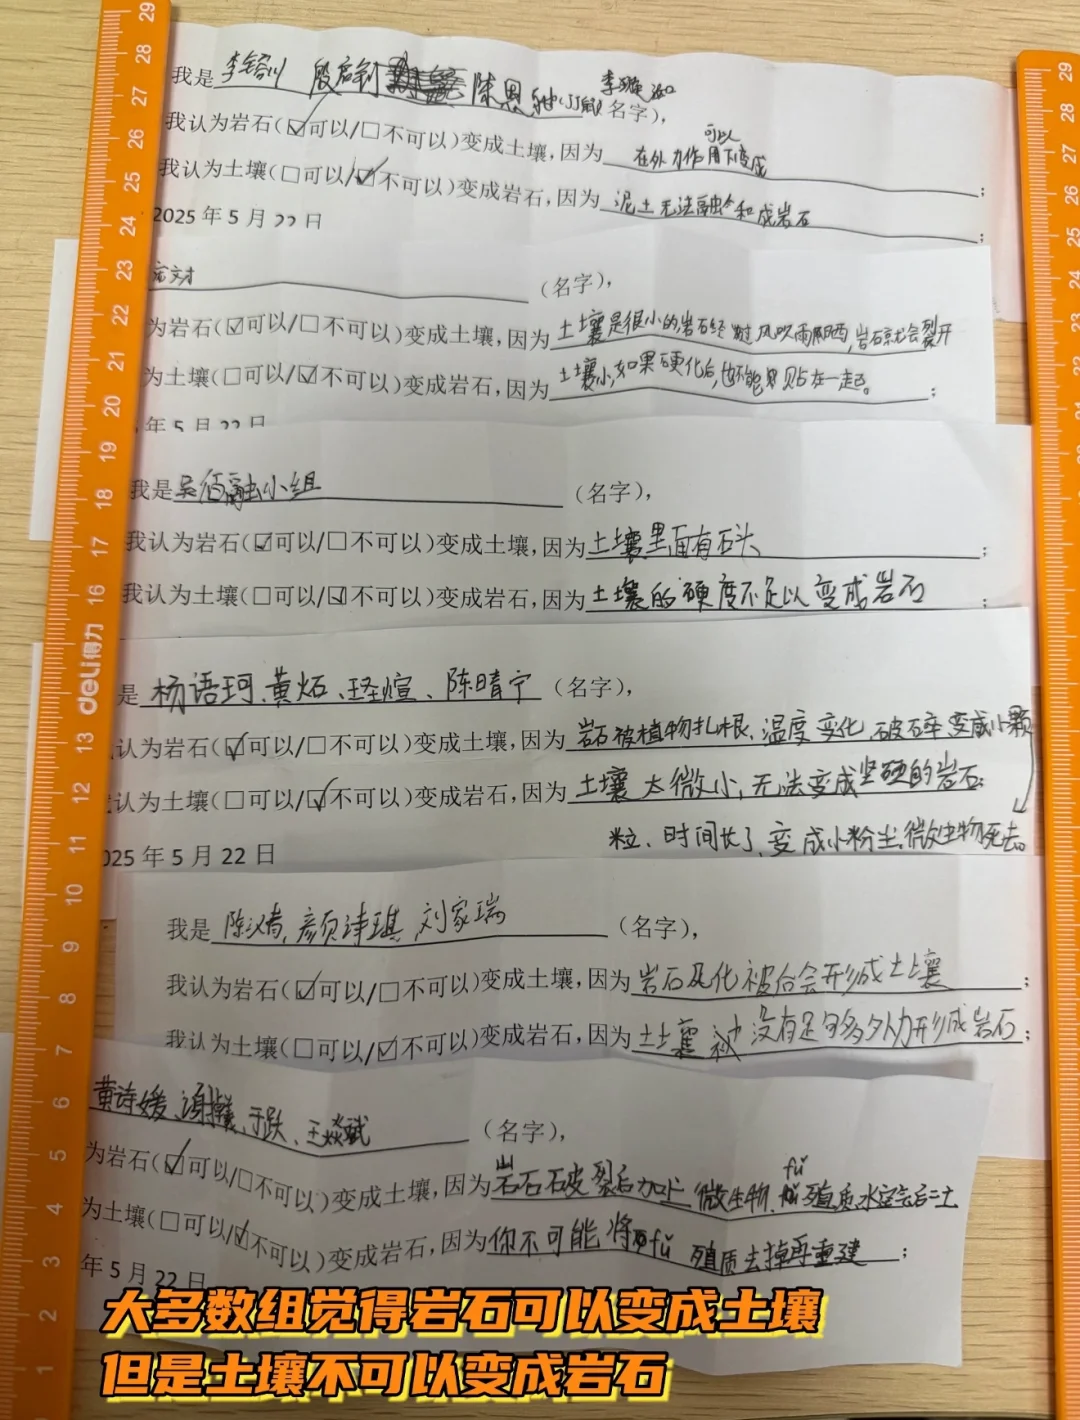 我是 李 川 殷启钊 陈恩 李璇 (名字),
我认为岩石(☑可以/☐不可以)变成土壤,因为 在外力作用下可以变成;
我认为土壤(☐可以/☑不可以)变成岩石,因为 泥土无法融合和成岩石;
2025年5月22日
文才 (名字),
为岩石(☑可以/☐不可以)变成土壤,因为 土壤是很小的岩石经过风吹雨晒,岩石就会裂开
为土壤(☐可以/☑不可以)变成岩石,因为 土壤小,如果硬化后,也不能贴在一起。;
年5月22日
我是 吴佰融小组 (名字),
我认为岩石(☑可以/☐不可以)变成土壤,因为 土壤里面有石头;
我认为土壤(☐可以/☑不可以)变成岩石,因为 土壤的硬度不足以变成岩石;
是 杨语珂、黄炻、王圣煊、陈晴宁 (名字),
认为岩石(☑可以/☐不可以)变成土壤,因为 岩石被植物扎根、温度变化、破碎变成小颗
认为土壤(☐可以/☑不可以)变成岩石,因为 土壤太微小,无法变成坚硬的岩石;
粒、时间长了、变成小粉尘、微生物死去。
025年5月22日
我是 陈汉 ,颜诗琪,刘家瑞 (名字),
我认为岩石(☑可以/☐不可以)变成土壤,因为 岩石风化被合会形成土壤;
我认为土壤(☐可以/☑不可以)变成岩石,因为 土壤 没有足够多外力形成岩石;
黄诗媛、谢 、于跃、王焱斌 (名字),
为岩石(☑可以/☐不可以)变成土壤,因为 岩石破裂后加上微生物、fǔ殖质、水 空气后=土
为土壤(☐可以/☑不可以)变成岩石,因为 你不可能将fǔ殖质去掉再重建;
年5月22日
大多数组觉得岩石可以变成土壤
但是土壤不可以变成岩石
deli得力
29
28
27
26
25
24
23
22
21
20
19
18
17
16
13
12
11
10
9
8
7
6
5
4
3
2
1